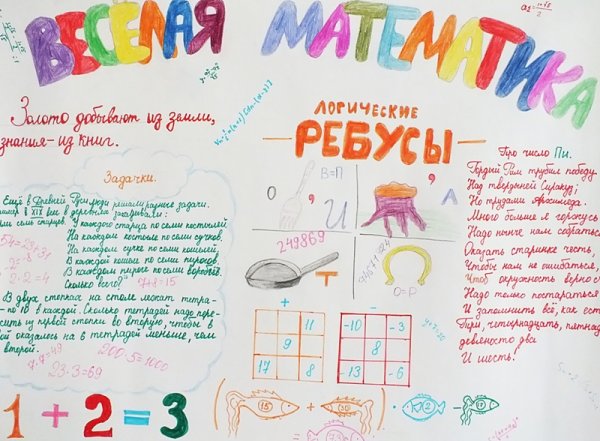 ВЕСЁЛАЯ МАТЕМАТИКА
Золото добывают из земли,
знания - из книг.
ЛОГИЧЕСКИЕ
РЕБУСЫ
О
В=П
И
,
А
249869
Т
О=Р
Задачки.
Ещё в Древней Руси люди решали разные задачи.
в XIX веке в деревнях загадывали:
семь старцев.
У каждого старца по семи костылей
На каждом костыле по семи сучков,
На каждом сучке по семи кошелей,
В каждом кошеле по семи пирогов,
В каждом пироге по семи воробьёв.
Сколько всего?
7+8=15
0,2=4
В двух стопках на столе лежат тетра-
по 10 в каждой. Сколько тетрадей надо пере-
из первой стопки во вторую, чтобы в
оказалось на 6 тетрадей меньше, чем
второй.
7·7=49
200·5=1000
23·3=69
Про число Пи.
Гордый Рим трубил победу
Над твердыней Сиракуз;
Но трудами Архимеда
Много больше я горжусь
Надо нынче нам собраться
Оказать старинке честь,
Чтобы нам не ошибаться,
Чтоб окружность верно
Надо только постараться
И запомнить всё, как есть
Три, четырнадцать, пятнад
девяносто два
И шесть!
+
11
9
17 8
-
-10 -3
8
-13 -6
1 + 2 = 3
( 15 + 30 ) · 2 -